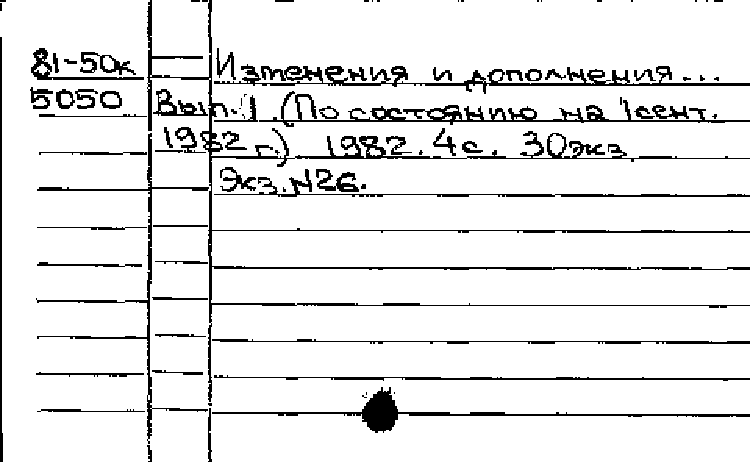 81-50к — Изменения и дополнения...
5050 Вып.1 (По состоянию на 1 сент.
1982 г.) 1982. 4с. 30экз.
Экз. N26.